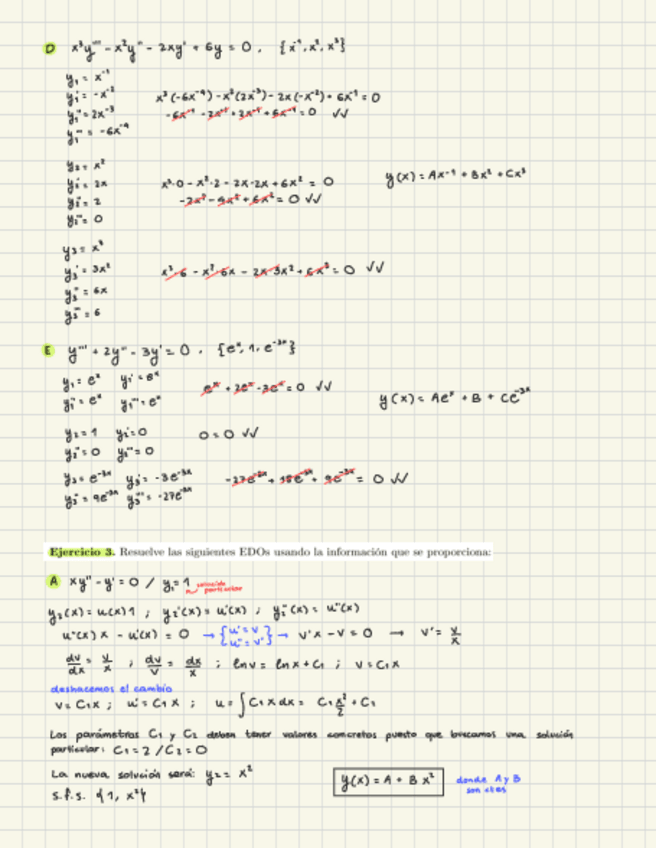 D x³y''' - x²y'' - 2xy' + 6y = 0 , {x⁻¹, x², x³}
y₁ = x⁻¹
y₁' = -x⁻² x³(-6x⁻⁴) - x²(2x⁻³) - 2x(-x⁻²) + 6x⁻¹ = 0
y₁'' = 2x⁻³ -6x⁻¹ - 2x⁻¹ + 2x⁻¹ + 6x⁻¹ = 0 √√
y₁''' = -6x⁻⁴
y₂ = x²
y₂' = 2x x³·0 - x²·2 - 2x·2x + 6x² = 0 y(x) = Ax⁻¹ + Bx² + Cx³
y₂'' = 2 -2x² - 4x² + 6x² = 0 √√
y₂''' = 0
y₃ = x³
y₃' = 3x² x³·6 - x²·6x - 2x·3x² + 6x³ = 0 √√
y₃'' = 6x
y₃''' = 6
E y''' + 2y'' - 3y' = 0 , {eˣ, 1, e⁻³ˣ}
y₁ = eˣ y₁' = eˣ eˣ + 2eˣ - 3eˣ = 0 √√
y₁'' = eˣ y₁''' = eˣ y(x) = Aeˣ + B + Ce⁻³ˣ
y₂ = 1 y₂' = 0 0 = 0 √√
y₂'' = 0 y₂''' = 0
y₃ = e⁻³ˣ y₃' = -3e⁻³ˣ -27e⁻³ˣ + 18e⁻³ˣ + 9e⁻³ˣ = 0 √√
y₃'' = 9e⁻³ˣ y₃''' = -27e⁻³ˣ
Ejercicio 3. Resuelve las siguientes EDOs usando la información que se proporciona:
A xy'' - y' = 0 / y₁ = 1 solución particular
y₂(x) = u(x)1 ; y₂'(x) = u'(x) ; y₂''(x) = u''(x)
u''(x) x - u'(x) = 0 → {u' = v u'' = v'} → v'x - v = 0 → v' = v/x
dv/dx = v/x ; dv/v = dx/x ; lnv = lnx + C₁ ; v = C₁x
deshacemos el cambio
v = C₁x ; u' = C₁x ; u = ∫C₁xdx = C₁x²/2 + C₂
Los parámetros C₁ y C₂ deben tener valores concretos puesto que buscamos una solución
particular: C₁ = 2 / C₂ = 0
La nueva solución será: y₂ = x² y(x) = A + Bx² donde A y B son ctes
s.f.s. {1, x²}